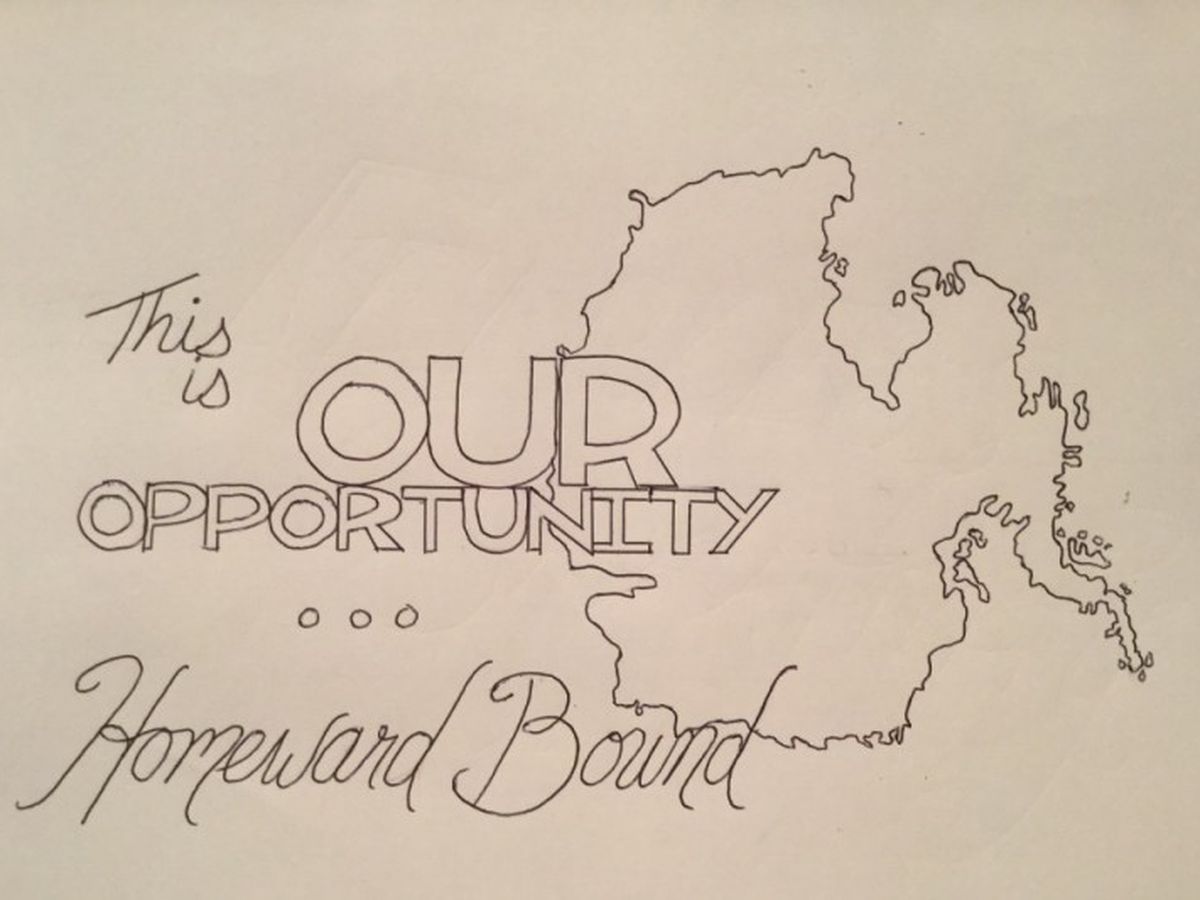 This
is
OUR
OPPORTUNITY
...
Homeward Bound